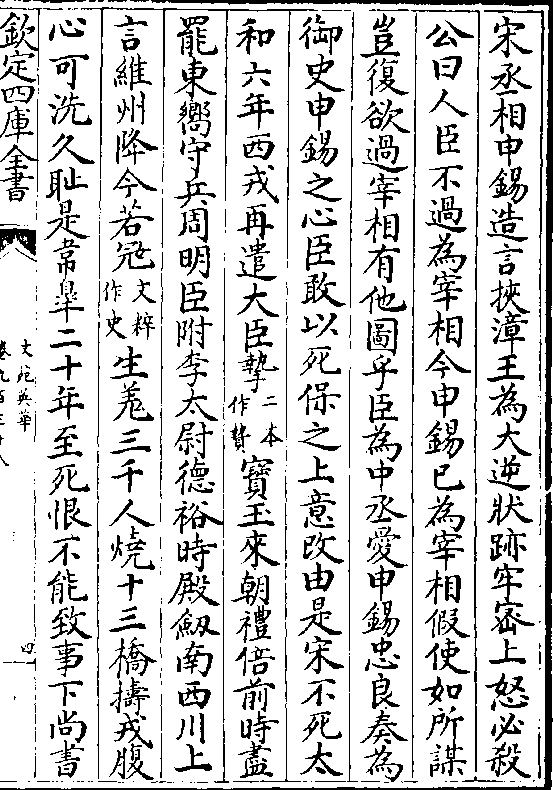 宋丞相申錫造言挾漳王為大逆狀跡牢密上怒必殺
公曰人臣不過為宰相今申錫已為宰相假使如所謀
豈復欲過宰相有他圖乎臣為中丞愛申錫忠良奏為
御史申錫之心臣敢以死保之上意改由是宋不死太
和六年西戎再遣大臣摯二本作贄寶玉來朝禮倍前時盡
罷東嚮守兵周明臣附李太尉德裕時殿劒南西川上
言維州降今若冦文粹作史生羌三千人燒十三橋擣戎腹
心可洗久恥是韋皐二十年至死恨不能致事下尚書
欽定四庫全書
文苑英華
卷九百三十八
四